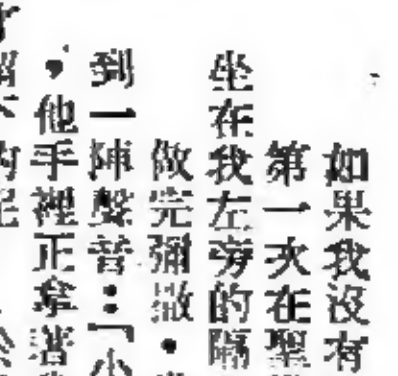 如果我沒有
第一次在聖
坐在我左旁的隔
做完彌撒・
到一陣聲音：「小
，他手裡正拿著